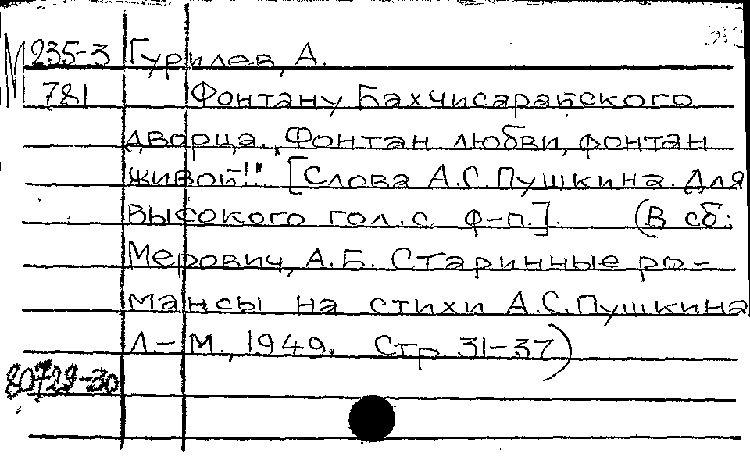 М 235-3 Гурилев, А.
781 Фонтану Бахчисарайского
дворца. „Фонтан любви, фонтан
живой!" [Слова А.С.Пушкина. Для
высокого гол. с ф-п.] (В сб.:
Мерович, А.Б. Старинные ро-
мансы на стихи А.С.Пушкина
Л.-М., 1949. Стр. 31-37)
80729-30